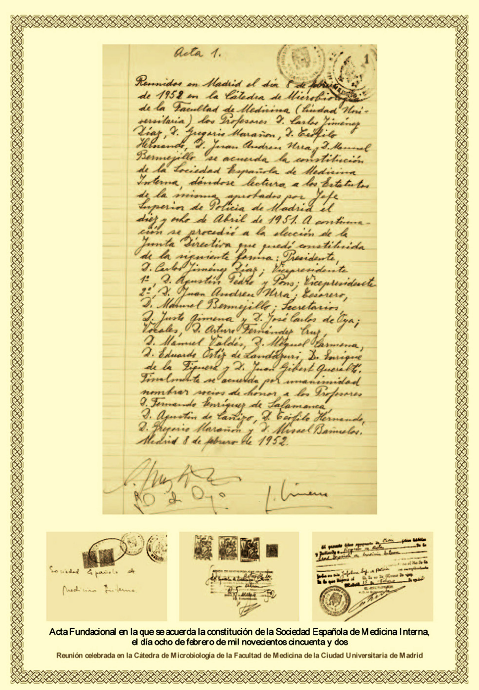 Acta 1.
1
Reunidos en Madrid el día 8 de febrero
de 1952 en la Cátedra de Microbiología
de la Facultad de Medicina (Ciudad Uni-
versitaria) los Profesores D. Carlos Jiménez
Díaz, D. Gregorio Marañon, D. Teófilo
Hernando, D. Juan Andreu Urra y D. Manuel
Bermejillo se acuerda la constitución
de la Sociedad Española de Medicina
Interna, dándose lectura a los Estatutos
de la misma aprobados por Jefe
Superior de Policia de Madrid el
diez y ocho de Abril de 1951. A continua-
ción se procedió a la elección de la
Junta Directiva que quedó constituida
de la siguiente forma: Presidente,
D. Carlos Jiménez Díaz; Vicepresidente
1º, D. Agustín Pedro y Pons; Vicepresidente
2º, D. Juan Andreu Urra; Tesorero,
D. Manuel Bermejillo; Secretarios
D. Justo Gimena y D. José Carlos de Oya;
Vocales, D. Arturo Fernández Cruz,
D. Manuel Valdés, D. Miguel Carmena,
D. Eduardo Ortiz de Landázuri, D. Enrique
de la Figuera y D. Juan Gibert Queraltó.
Finalmente se acuerda por unanimidad
nombrar socios de honor a los Profesores
D. Fernando Enríquez de Salamanca
D. Agustín de Cañizo, D. Teófilo Hernando,
D. Gregorio Marañon y D. Misael Bañuelos.
Madrid 8 de febrero de 1952.
Sociedad Española de
Medicina Interna.
Acta Fundacional en la que se acuerda la constitución de la Sociedad Española de Medicina Interna,
el día ocho de febrero de mil novecientos cincuenta y dos
Reunión celebrada en la Cátedra de Microbiología de la Facultad de Medicina de la Ciudad Universitaria de Madrid